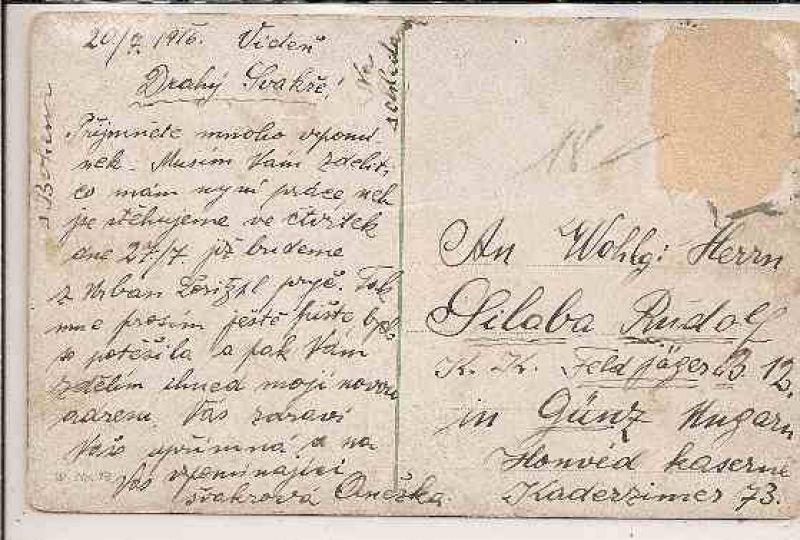 20/7. 1916. Vídeň
Drahý Svakře!
Přijměte mnoho vzpomí
nek. Musím Vám zdělit,
co mám nyní práce neb
se stěhujeme ve čtvrtek
dne 27/7. již budeme
z Urban Loritzpl pryč. Tak
mne prosím ještě pište bych
se potěšila a pak Vám
zdělím ihned moji novou
adresu. Vás zdraví
Vaše upřímná a na
Vás vzpomínající
švakrová Anežka.
s Bohem
Na
shledanou
18
An Wohlg: Herrn
Silaba Rudolf
K. K. Feldjäger B. 12.
in Günz Ungarn
Honvéd kaserne
Kaderzimer 73.